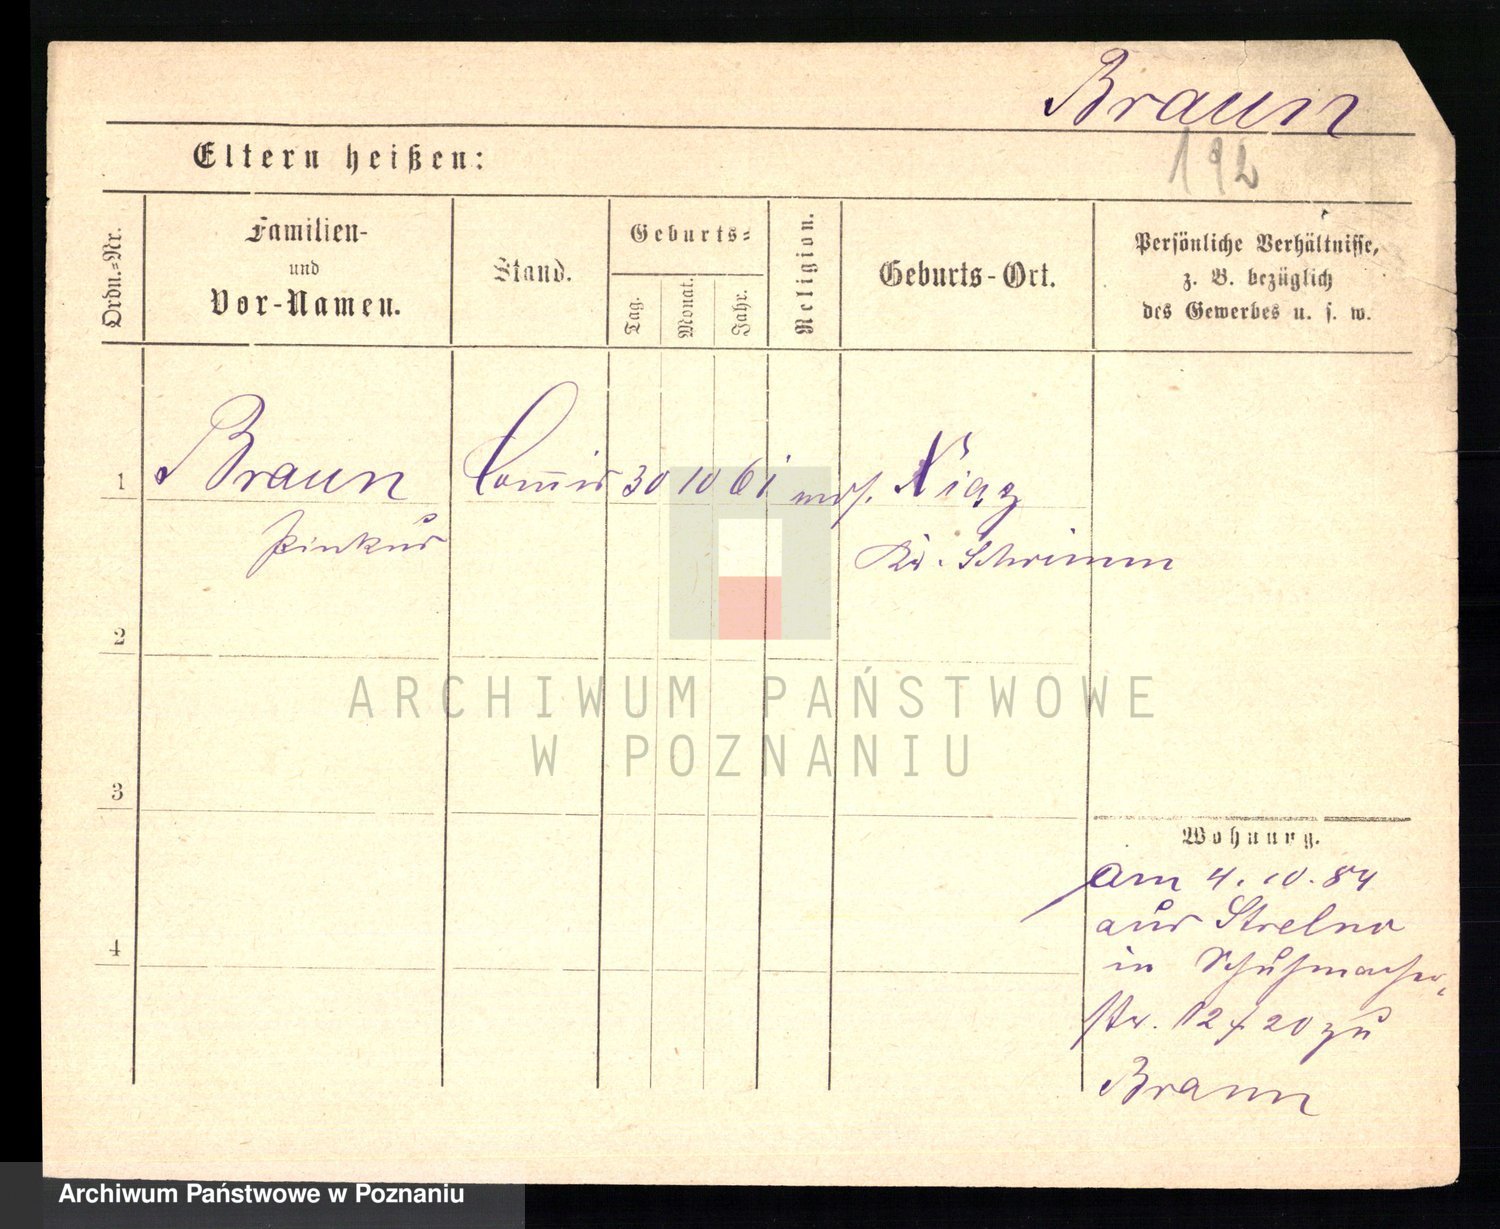 Braun
192
Eltern heißen:
Ordn.=Nr.
Familien-
und
Vor-Namen.
Stand.
Geburts=
Tag.
Monat.
Jahr.
Religion.
Geburts-Ort.
Persönliche Verhältnisse,
z. B. bezüglich
des Gewerbes u. s. w.
1
Braun
Pinkus
Commis
30
10
61
mos.
Xiąz
Kr. Schrimm
2
3
4
Wohnung.
Am 4. 10. 84
aus Strelno
in Schuhmacher
str. 12/20 zu
Braun
ARCHIWUM PAŃSTWOWE
W POZNANIU
Archiwum Państwowe w Poznaniu